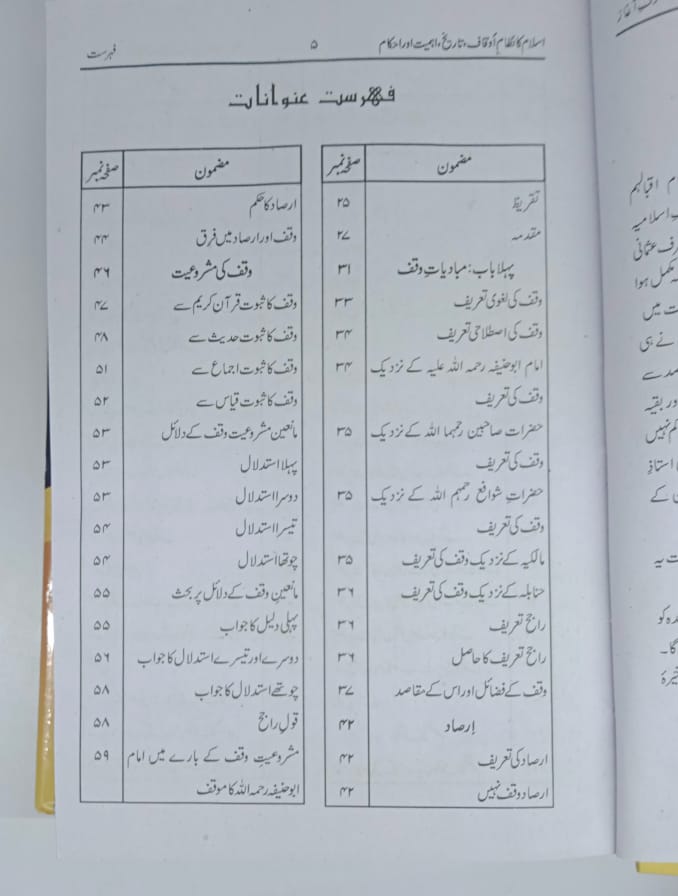 اسلام کا نظامِ اَوقاف، تاریخ، اہمیت اور احکام ۵ فہرست
فہرست عنوانات
مضمون صفحہ نمبر
تقریظ ۲۵
مقدمہ ۲۷
پہلا باب: مبادیاتِ وقف ۳۱
وقف کی لغوی تعریف ۳۳
وقف کی اصطلاحی تعریف ۳۴
امام ابوحنیفہ رحمہ اللہ علیہ کے نزدیک ۳۴
وقف کی تعریف
حضرات صاحبین رحمہما اللہ کے نزدیک ۳۵
وقف کی تعریف
حضراتِ شوافع رحمہم اللہ کے نزدیک ۳۵
وقف کی تعریف
مالکیہ کے نزدیک وقف کی تعریف ۳۵
حنابلہ کے نزدیک وقف کی تعریف ۳۶
راجح تعریف ۳۶
راجح تعریف کا حاصل ۳۶
وقف کے فضائل اور اس کے مقاصد ۳۷
اِرصاد ۴۲
ارصاد کی تعریف ۴۲
ارصاد وقف نہیں ۴۲
مضمون صفحہ نمبر
ارصاد کا حکم ۴۳
وقف اور ارصاد میں فرق ۴۴
وقف کی مشروعیت ۴۶
وقف کا ثبوت قرآن کریم سے ۴۷
وقف کا ثبوت حدیث سے ۴۸
وقف کا ثبوت اجماع سے ۵۱
وقف کا ثبوت قیاس سے ۵۲
مانعین مشروعیت وقف کے دلائل ۵۳
پہلا استدلال ۵۳
دوسرا استدلال ۵۳
تیسرا استدلال ۵۴
چوتھا استدلال ۵۴
مانعینِ وقف کے دلائل پر بحث ۵۵
پہلی دلیل کا جواب ۵۵
دوسرے اور تیسرے استدلال کا جواب ۵۶
چوتھے استدلال کا جواب ۵۸
قولِ راجح ۵۸
مشروعیتِ وقف کے بارے میں امام ۵۹
ابوحنیفہ رحمہ اللہ کا موقف
اقبالہم
اسلامیہ
عثمانی
مکمل ہوا
ت میں
نے ہی
صد سے
ور بقیہ
کم نہیں
استاذِ
ن کے
ت یہ
دہ کو
گا۔